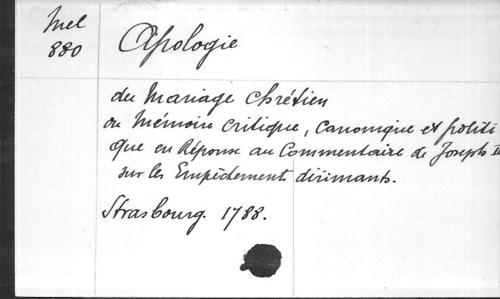 Mel
880
Apologie
du Mariage Chrétien
ou Mémoire critique, canonique et politi
que en Réponse au Commentaire de Joseph II
sur les Empêchement dirimants.
Strasbourg. 1788.